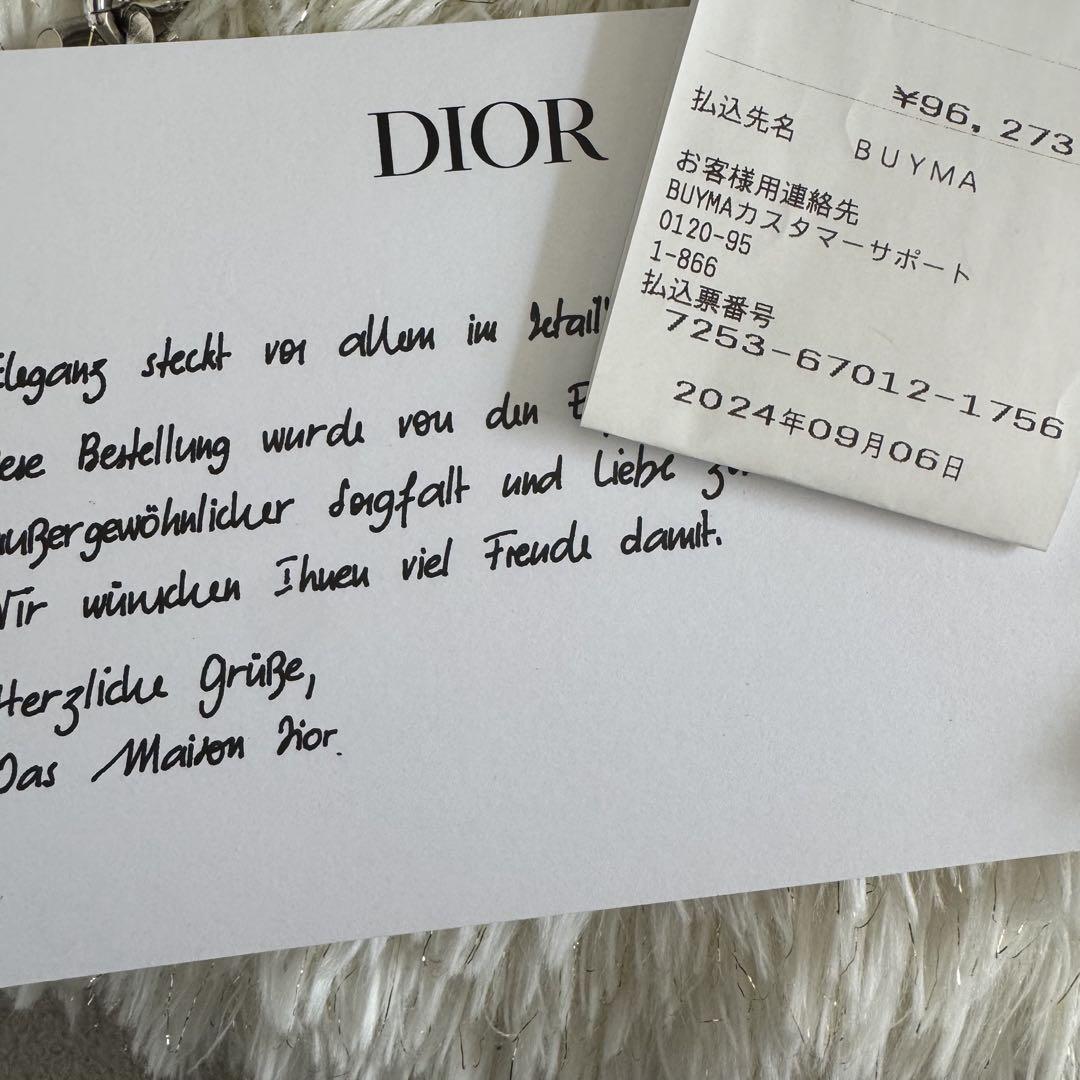 DIOR
Eleganz steckt vor allem im Detail"
iese Bestellung wurde von den
außergewöhnlicher Sorgfalt und Liebe
Wir wünschen Ihnen viel Freude damit.
Herzliche Grüße,
Das Maison Dior.
¥96,273
払込先名 BUYMA
お客様用連絡先
BUYMAカスタマーサポート
0120-95
1-866
払込票番号
7253-67012-1756
2024年09月06日